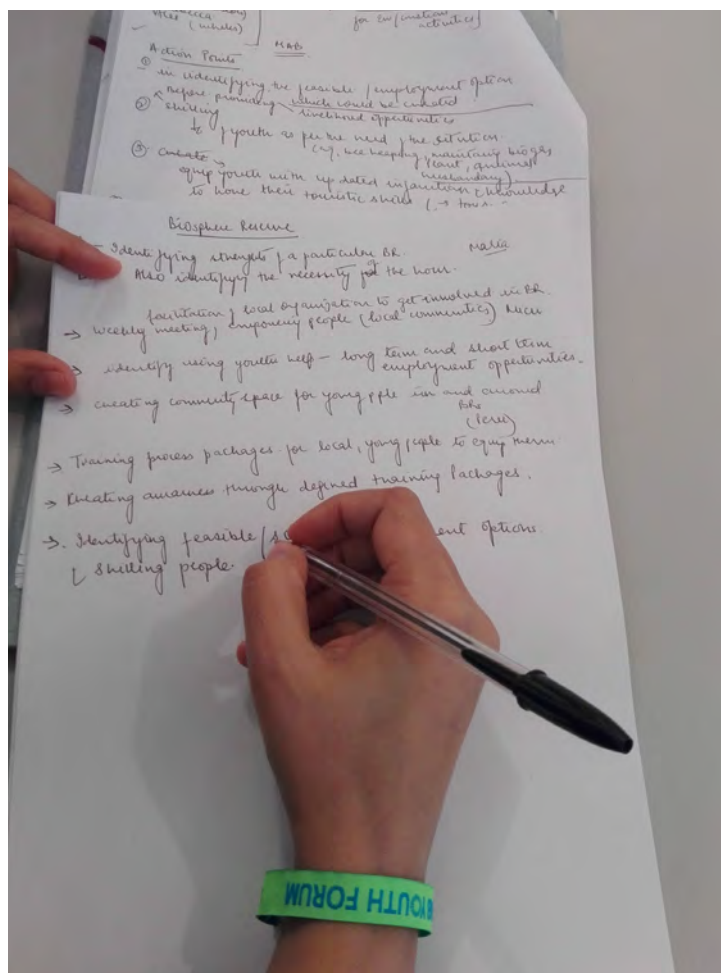 (whales)
for Eco/
activities)
MAB
Action Points
① in identifying the feasible / employment option
which could be created
② Before providing livelihood opportunities
skilling
youth as per the need / the situation.
(eg. bee keeping, maintaining biogas
plant, animal
husbandary)
③ create
equip youth with updated information / knowledge
to hone their touristic skills
Biosphere Reserve
Identifying strengths of a particular BR.
Maria
Also identifying the necessity of the hour.
facilitation of local organization to get involved in BR.
→ Weekly meeting, empowering people (local communities)
→ identify using youth help - long term and short term
employment oppertunities.
→ creating community space for young pple in and around
BRs
(Peru)
→ Training process packages for local, young people to equip them
→ Creating awarness through defined training Packages.
→. Identifying feasible / ent options.
skilling people.
YOUTH FORUM